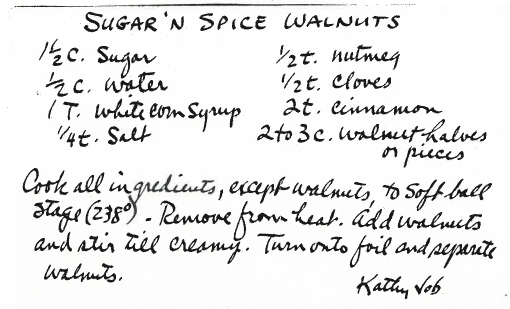 SUGAR 'N SPICE WALNUTS
1 1/2 c. Sugar
1/2 c. water
1 T. white corn syrup
1/4 t. Salt
1/2 t. nutmeg
1/2 t. cloves
2 t. cinnamon
2 to 3 c. walnut halves
or pieces
Cook all ingredients, except walnuts, to Soft ball
stage (238°) - Remove from heat. Add walnuts
and stir till creamy. Turn onto foil and separate
walnuts.
Kathy Job